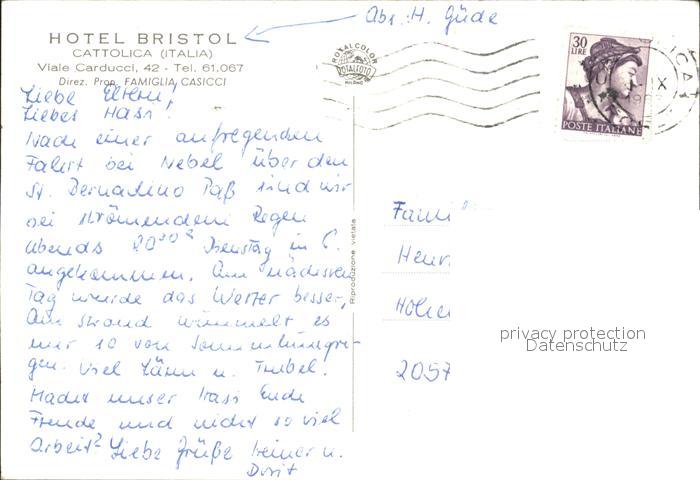 Abs. H. Güde
HOTEL BRISTOL
CATTOLICA (ITALIA)
Viale Carducci, 42 - Tel. 61.067
Direz. Prop. FAMIGLIA CASICCI
ROTALCOLOR
ROTALFOTO
MILANO
30
LIRE
POSTE ITALIANE
Liebe Eltern,
Liebes Hasi!
Nach einer aufregenden
Fahrt bei Nebel über den
St. Bernadino Paß sind wir
bei strömendem Regen
abends 20 Dienstag in C.
angekommen. Am nächsten
Tag wurde das Wetter besser,
Am Strand wimmelt es
nur so von
gen. Viel Lärm u. Trubel.
Macht unser Hasi Euch
Freude und nicht so viel
Arbeit? Liebe Grüße Heiner u.
Dorit
Riproduzione vietata
Fami
Henr
Hohe
2057
privacy protection
Datenschutz